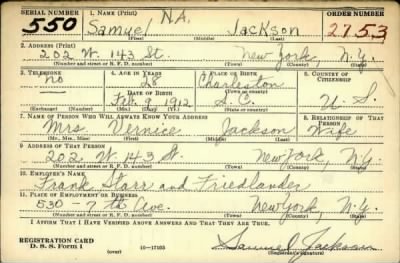 SERIAL NUMBER 1. NAME (Print) ORDER NUMBER
550 Samuel N.A. Jackson 2753
(First) (Middle) (Last)
2. ADDRESS (Print)
202 W. 143 St. New York, N.Y.
(Number and street or R. F. D. number) (Town) (County) (State)
3. TELEPHONE 4. AGE IN YEARS 5. PLACE OF BIRTH 6. COUNTRY OF CITIZENSHIP
no 28 Charleston
DATE OF BIRTH (Town or county)
Feb. 9 1912 S.C. U.S.
(Exchange) (Number) (Mo.) (Day) (Yr.) (State or country)
7. NAME OF PERSON WHO WILL ALWAYS KNOW YOUR ADDRESS 8. RELATIONSHIP OF THAT PERSON
Mrs Vernice Jackson Wife
(Mr., Mrs., Miss) (First) (Middle) (Last)
9. ADDRESS OF THAT PERSON
202 W 143 St. New York, N.Y.
(Number and street or R. F. D. number) (Town) (County) (State)
10. EMPLOYER'S NAME
Frank Starr and Friedlander
11. PLACE OF EMPLOYMENT OR BUSINESS
530 - 7th Ave. New York, N.Y.
(Number and street or R. F. D. number) (Town) (County) (State)
I AFFIRM THAT I HAVE VERIFIED ABOVE ANSWERS AND THAT THEY ARE TRUE.
REGISTRATION CARD
D. S. S. Form 1 16-17105 Samuel Jackson
(Registrant's signature)